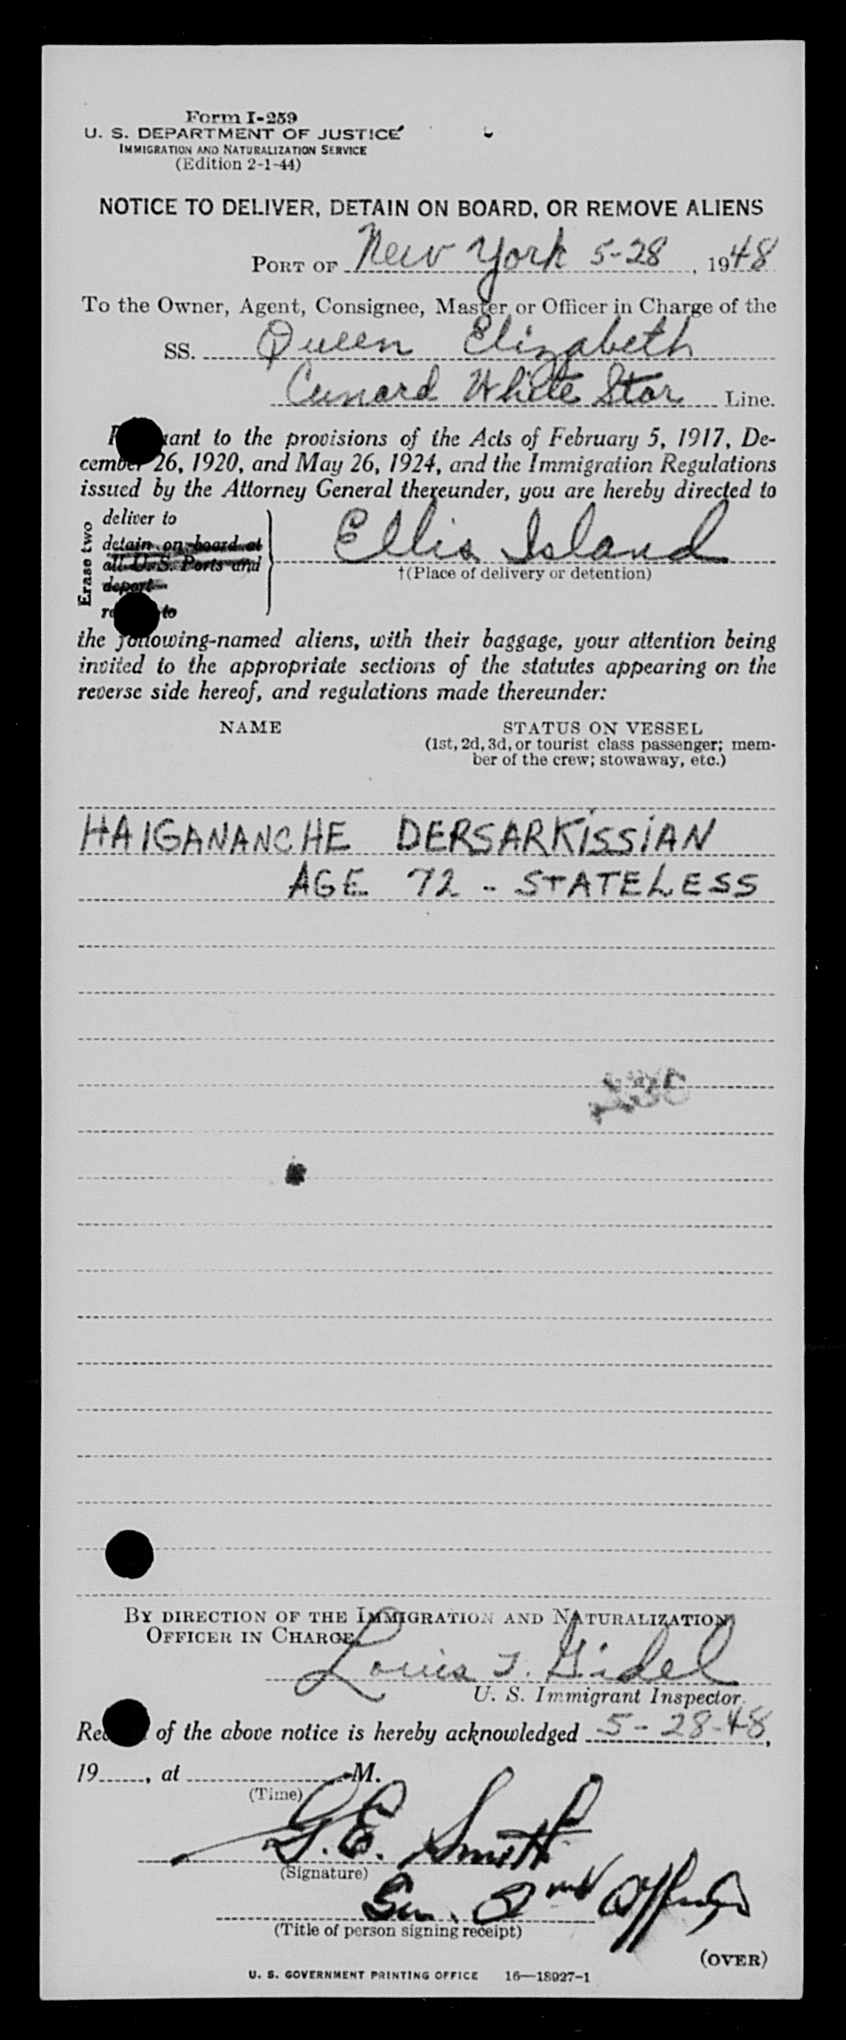 Form I-259
U. S. DEPARTMENT OF JUSTICE
IMMIGRATION AND NATURALIZATION SERVICE
(Edition 2-1-44)
NOTICE TO DELIVER, DETAIN ON BOARD, OR REMOVE ALIENS
PORT OF New York 5-28, 1948
To the Owner, Agent, Consignee, Master or Officer in Charge of the
SS. Queen Elizabeth
Cunard White Star Line.
to the provisions of the Acts of February 5, 1917, De-
cember 26, 1920, and May 26, 1924, and the Immigration Regulations
issued by the Attorney General thereunder, you are hereby directed to
Erase two
deliver to
detain on board at
all U.S. Ports and
deport
to
Ellis Island
†(Place of delivery or detention)
the following-named aliens, with their baggage, your attention being
invited to the appropriate sections of the statutes appearing on the
reverse side hereof, and regulations made thereunder:
NAME STATUS ON VESSEL
(1st, 2d, 3d, or tourist class passenger; mem-
ber of the crew; stowaway, etc.)
HAIGANANCHE DERSARKISSIAN
AGE 72 - STATELESS
BY DIRECTION OF THE IMMIGRATION AND NATURALIZATION
OFFICER IN CHARGE,
Louis J. Gidel
U. S. Immigrant Inspector.
of the above notice is hereby acknowledged 5-28-48,
19, at M.
(Time)
G.E. Smith
(Signature)
(Title of person signing receipt)
(OVER)
U. S. GOVERNMENT PRINTING OFFICE 16—18927-1